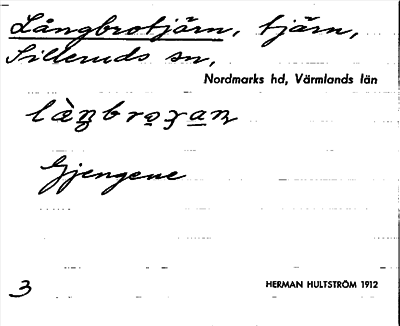 Långbrotjärn, tjärn,
Silleruds sn,
Nordmarks hd, Värmlands län
Gjengene
3 HERMAN HULTSTRÖM 1912